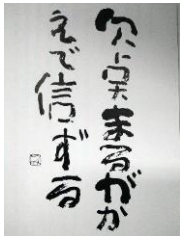 欠点まるがか
えで信ずる